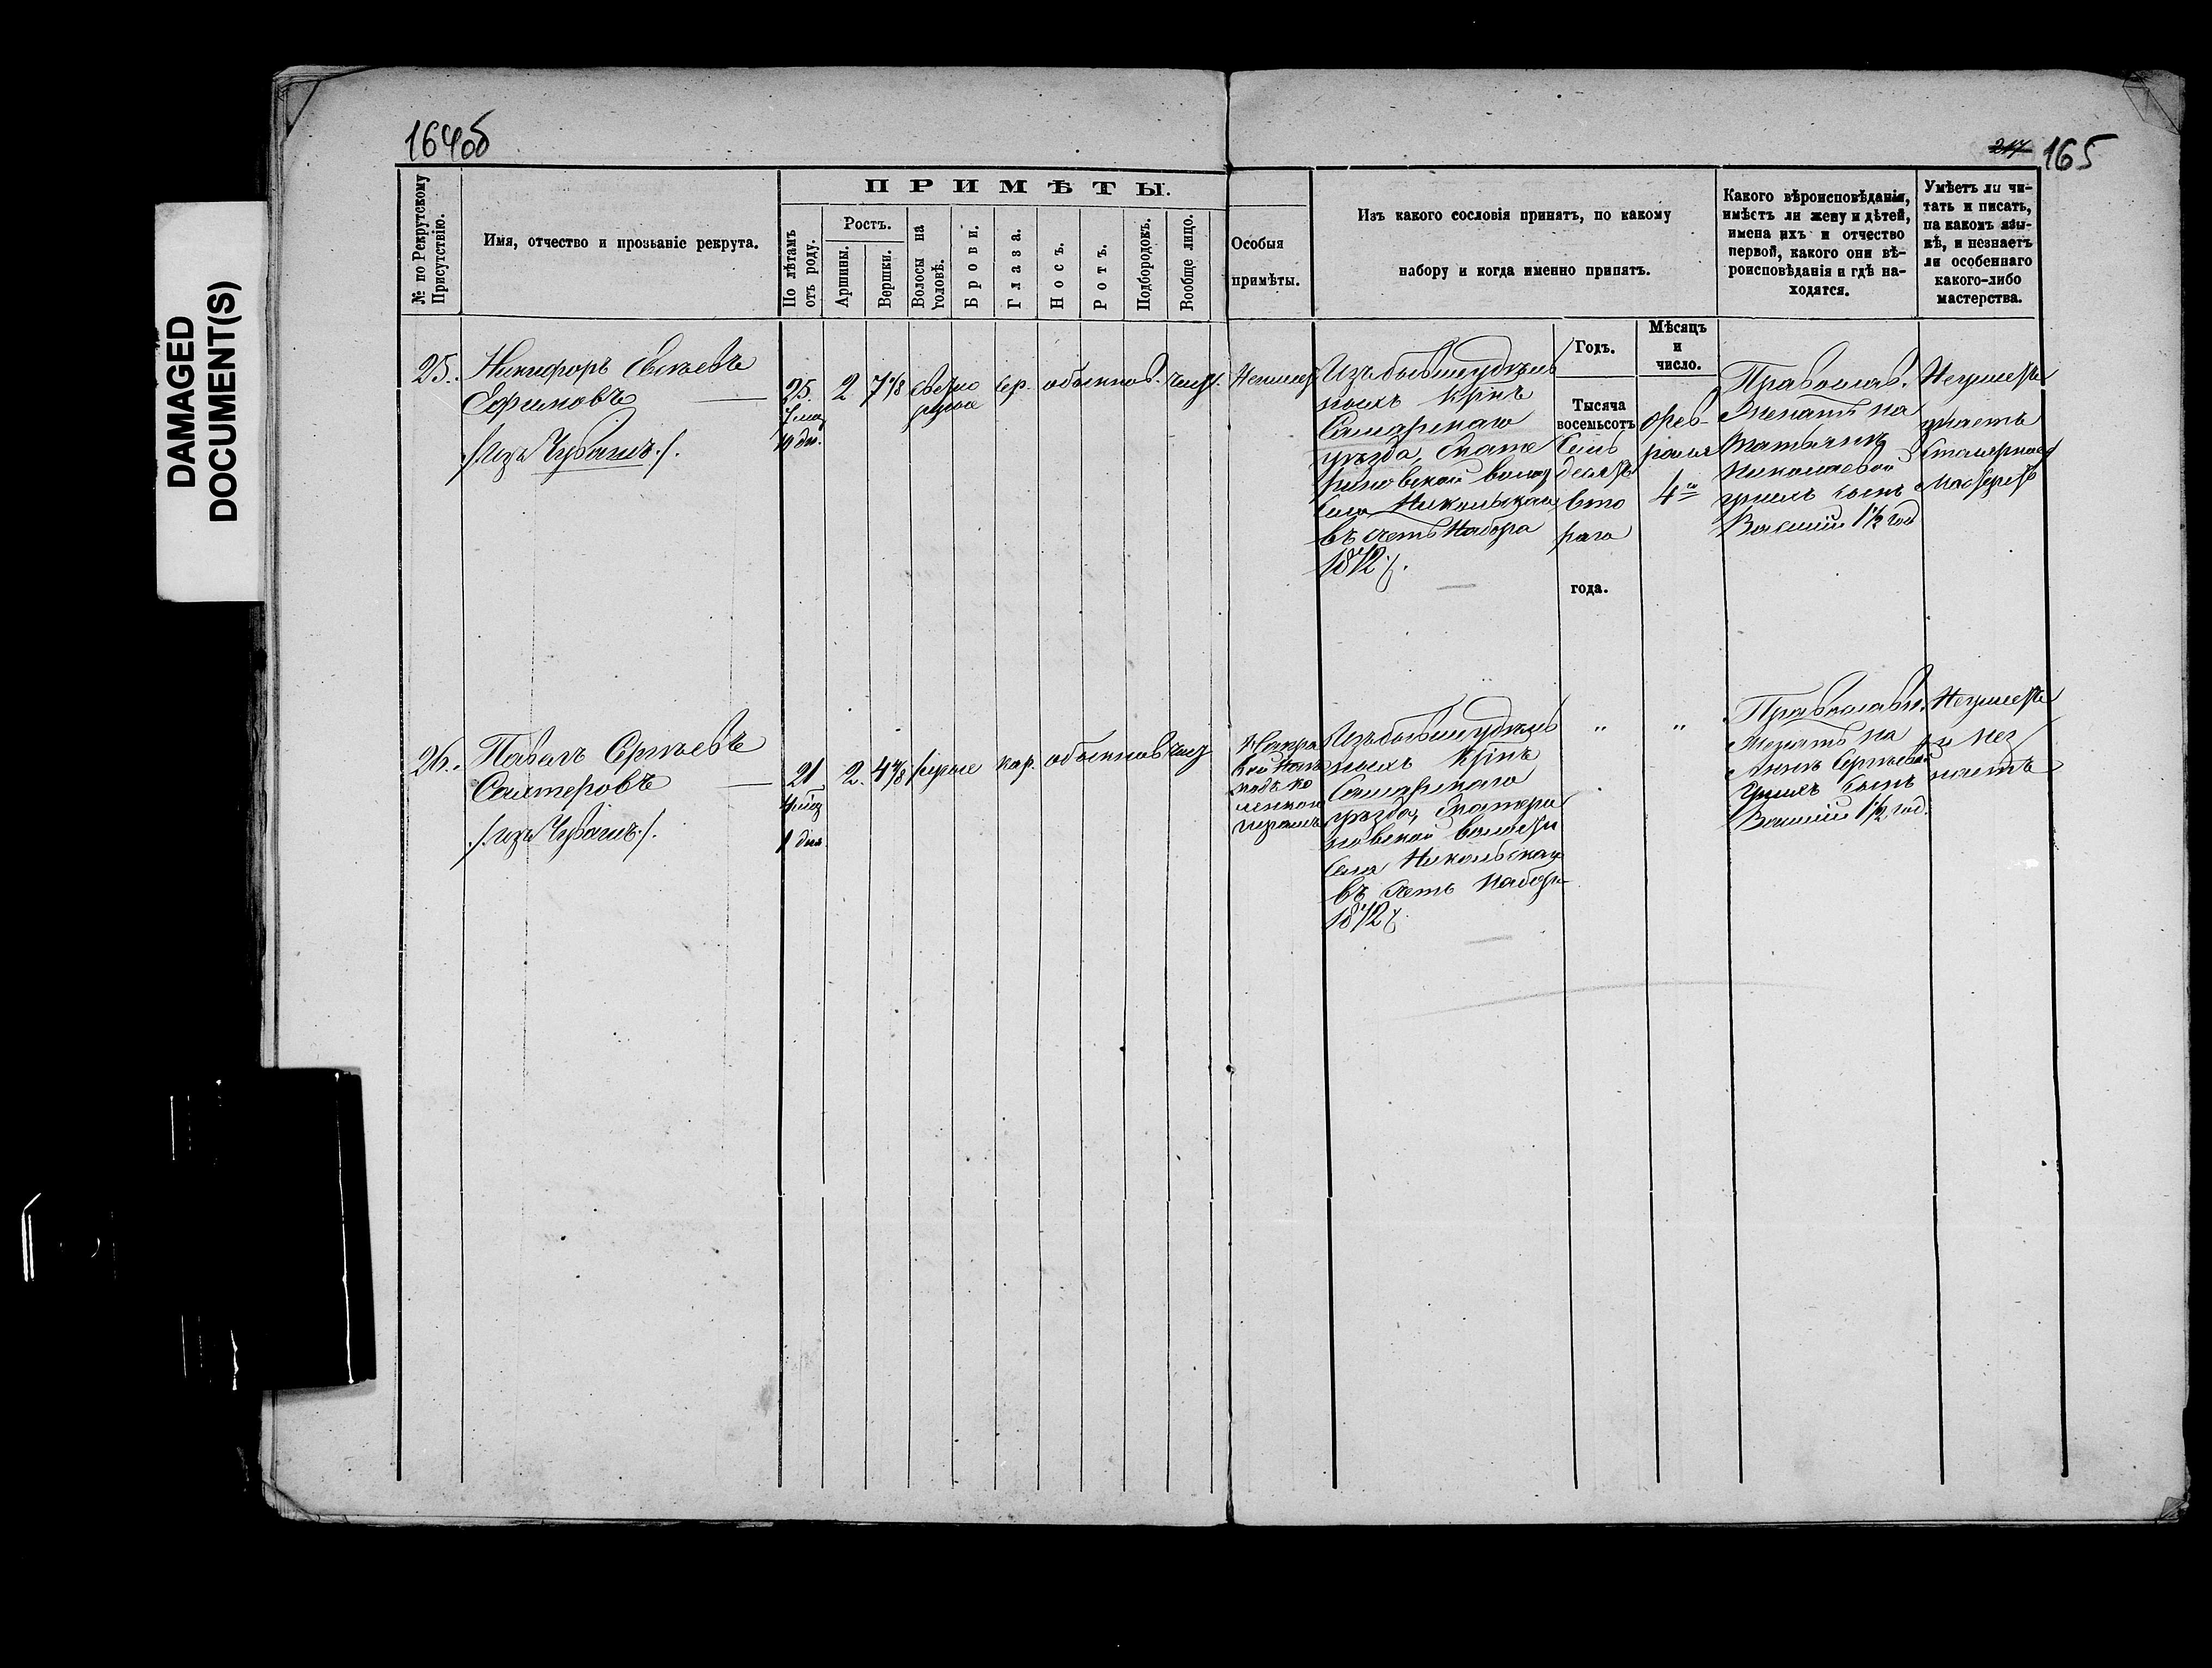 DAMAGED
DOCUMENT(S)
164об
217 165
№ по Рекрутскому Присутствію.
Имя, отчество и прозваніе рекрута.
ПРИМѢТЫ.
По лѣтамъ отъ роду.
Ростъ.
Аршины.
Вершки.
Волосы на головѣ.
Брови.
Глаза.
Носъ.
Ротъ.
Подбородокъ.
Вообще лицо.
Особыя
примѣты.
Изъ какого сословія принятъ, по какому
набору и когда именно принятъ.
Какого вѣроисповѣданія,
имѣетъ ли жену и дѣтей,
имена ихъ и отчество
первой, какого они вѣ-
роисповѣданія и гдѣ на-
ходятся.
Умѣетъ ли чи-
тать и писать,
на какомъ язы-
кѣ, и незнаетъ
ли особеннаго
какого-либо
мастерства.
Годъ.
Мѣсяцъ
и
число.
25. Никифоръ
Ефимовъ
/изъ Чувашъ/.
25.
7 мѣс
19 дн.
2 7 1/8
свѣтло
русые
сер. обыкнов. чист.
Изъ бывш удѣль
ныхъ крꙵнъ
Самарскаго
уѣзда, Екате
риновской волос
села Никольскаго
въ счетъ набора
1872 г.
Тысяча
восемьсотъ
Семь
десятъ
вто
раго
года.
Фев-
раля
4го
Православ.
Женатъ на
Николаевой
у нихъ сынъ
Василій 1 1/2 год
Неумѣетъ
знаетъ
столярное
мастерст
26. Павелъ Сергѣевъ
Сантеровъ
/изъ Чувашъ/.
21
1 дня
2. 4 4/8 русые кар. обыкнов чист
На пра
вой ногѣ
подъ ко
ленкой
шрамъ
Изъ бывш удѣль
ныхъ крꙵнъ
Самарскаго
уѣзда, Екатери
новской волости
села Никольскаго
въ счетъ набора
1872 г.
" "
Православн.
Женатъ на
Аннѣ Сергѣевой
У нихъ сынъ
Василій 1 1/2 год.
Неумѣетъ
и нез
наетъ